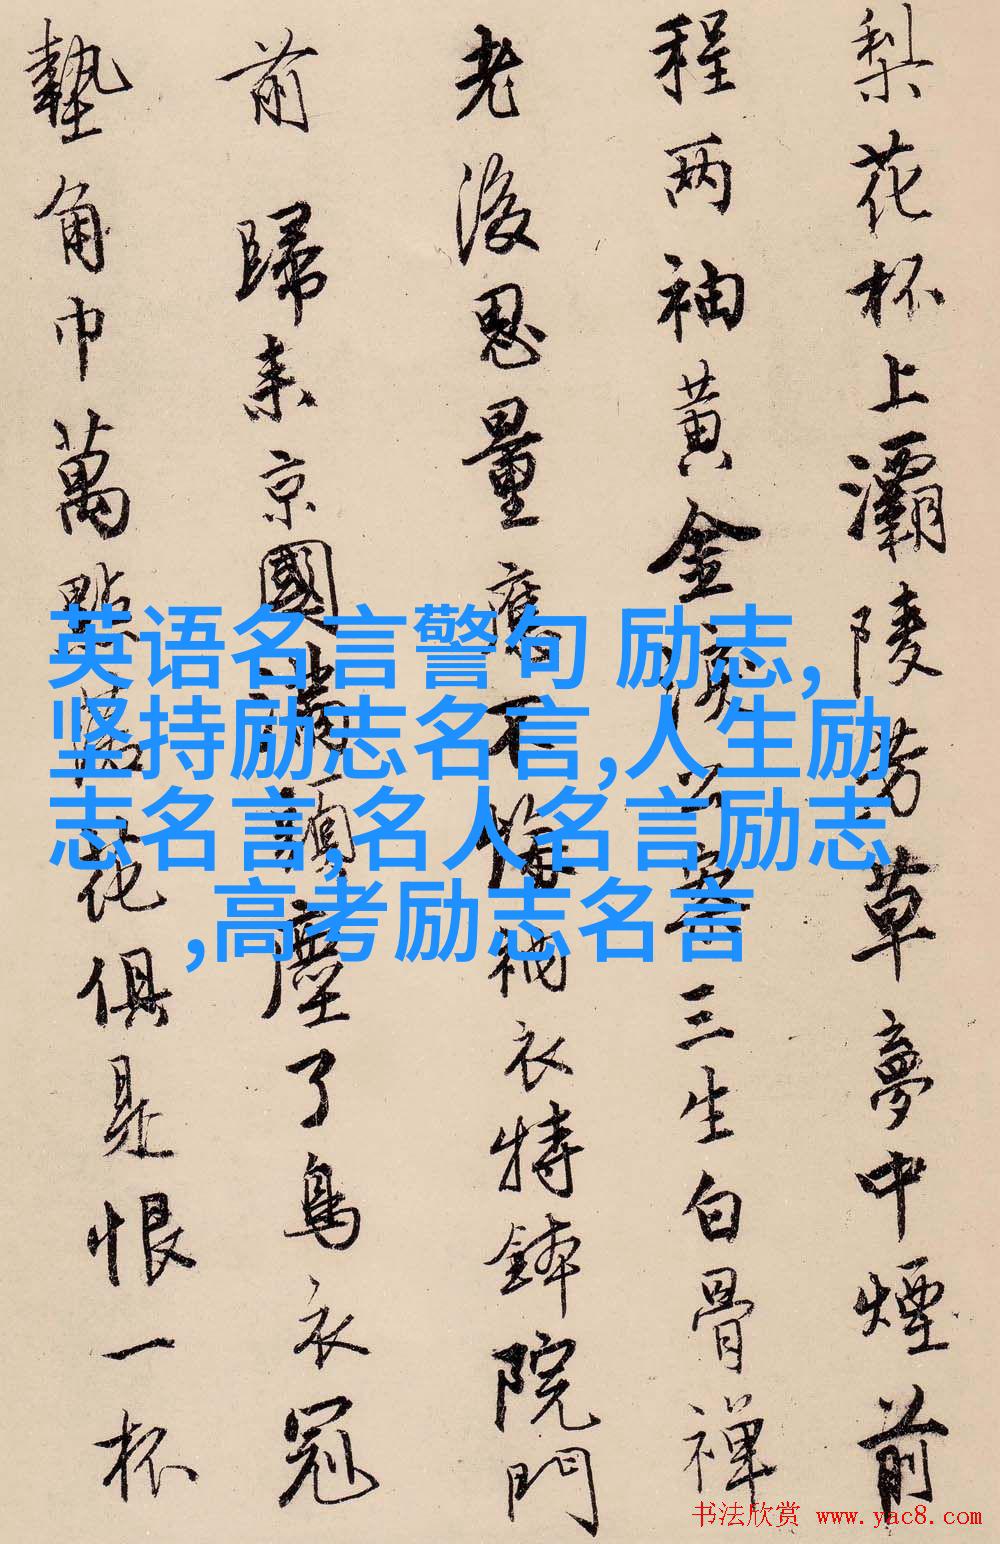 梨花杯上灞陵芳草夢中煙前
程两袖黄金淚公案三生白骨禅
老後思量應不悔衲衣持鉢院門
前 歸来京國满頭塵了烏衣冠
墊角巾萬點落花俱是恨一杯
英语名言警句 励志,
坚持励志名言,人生励
志名言,名人名言励志
,高考励志名言
书法欣赏 www.yac8.com